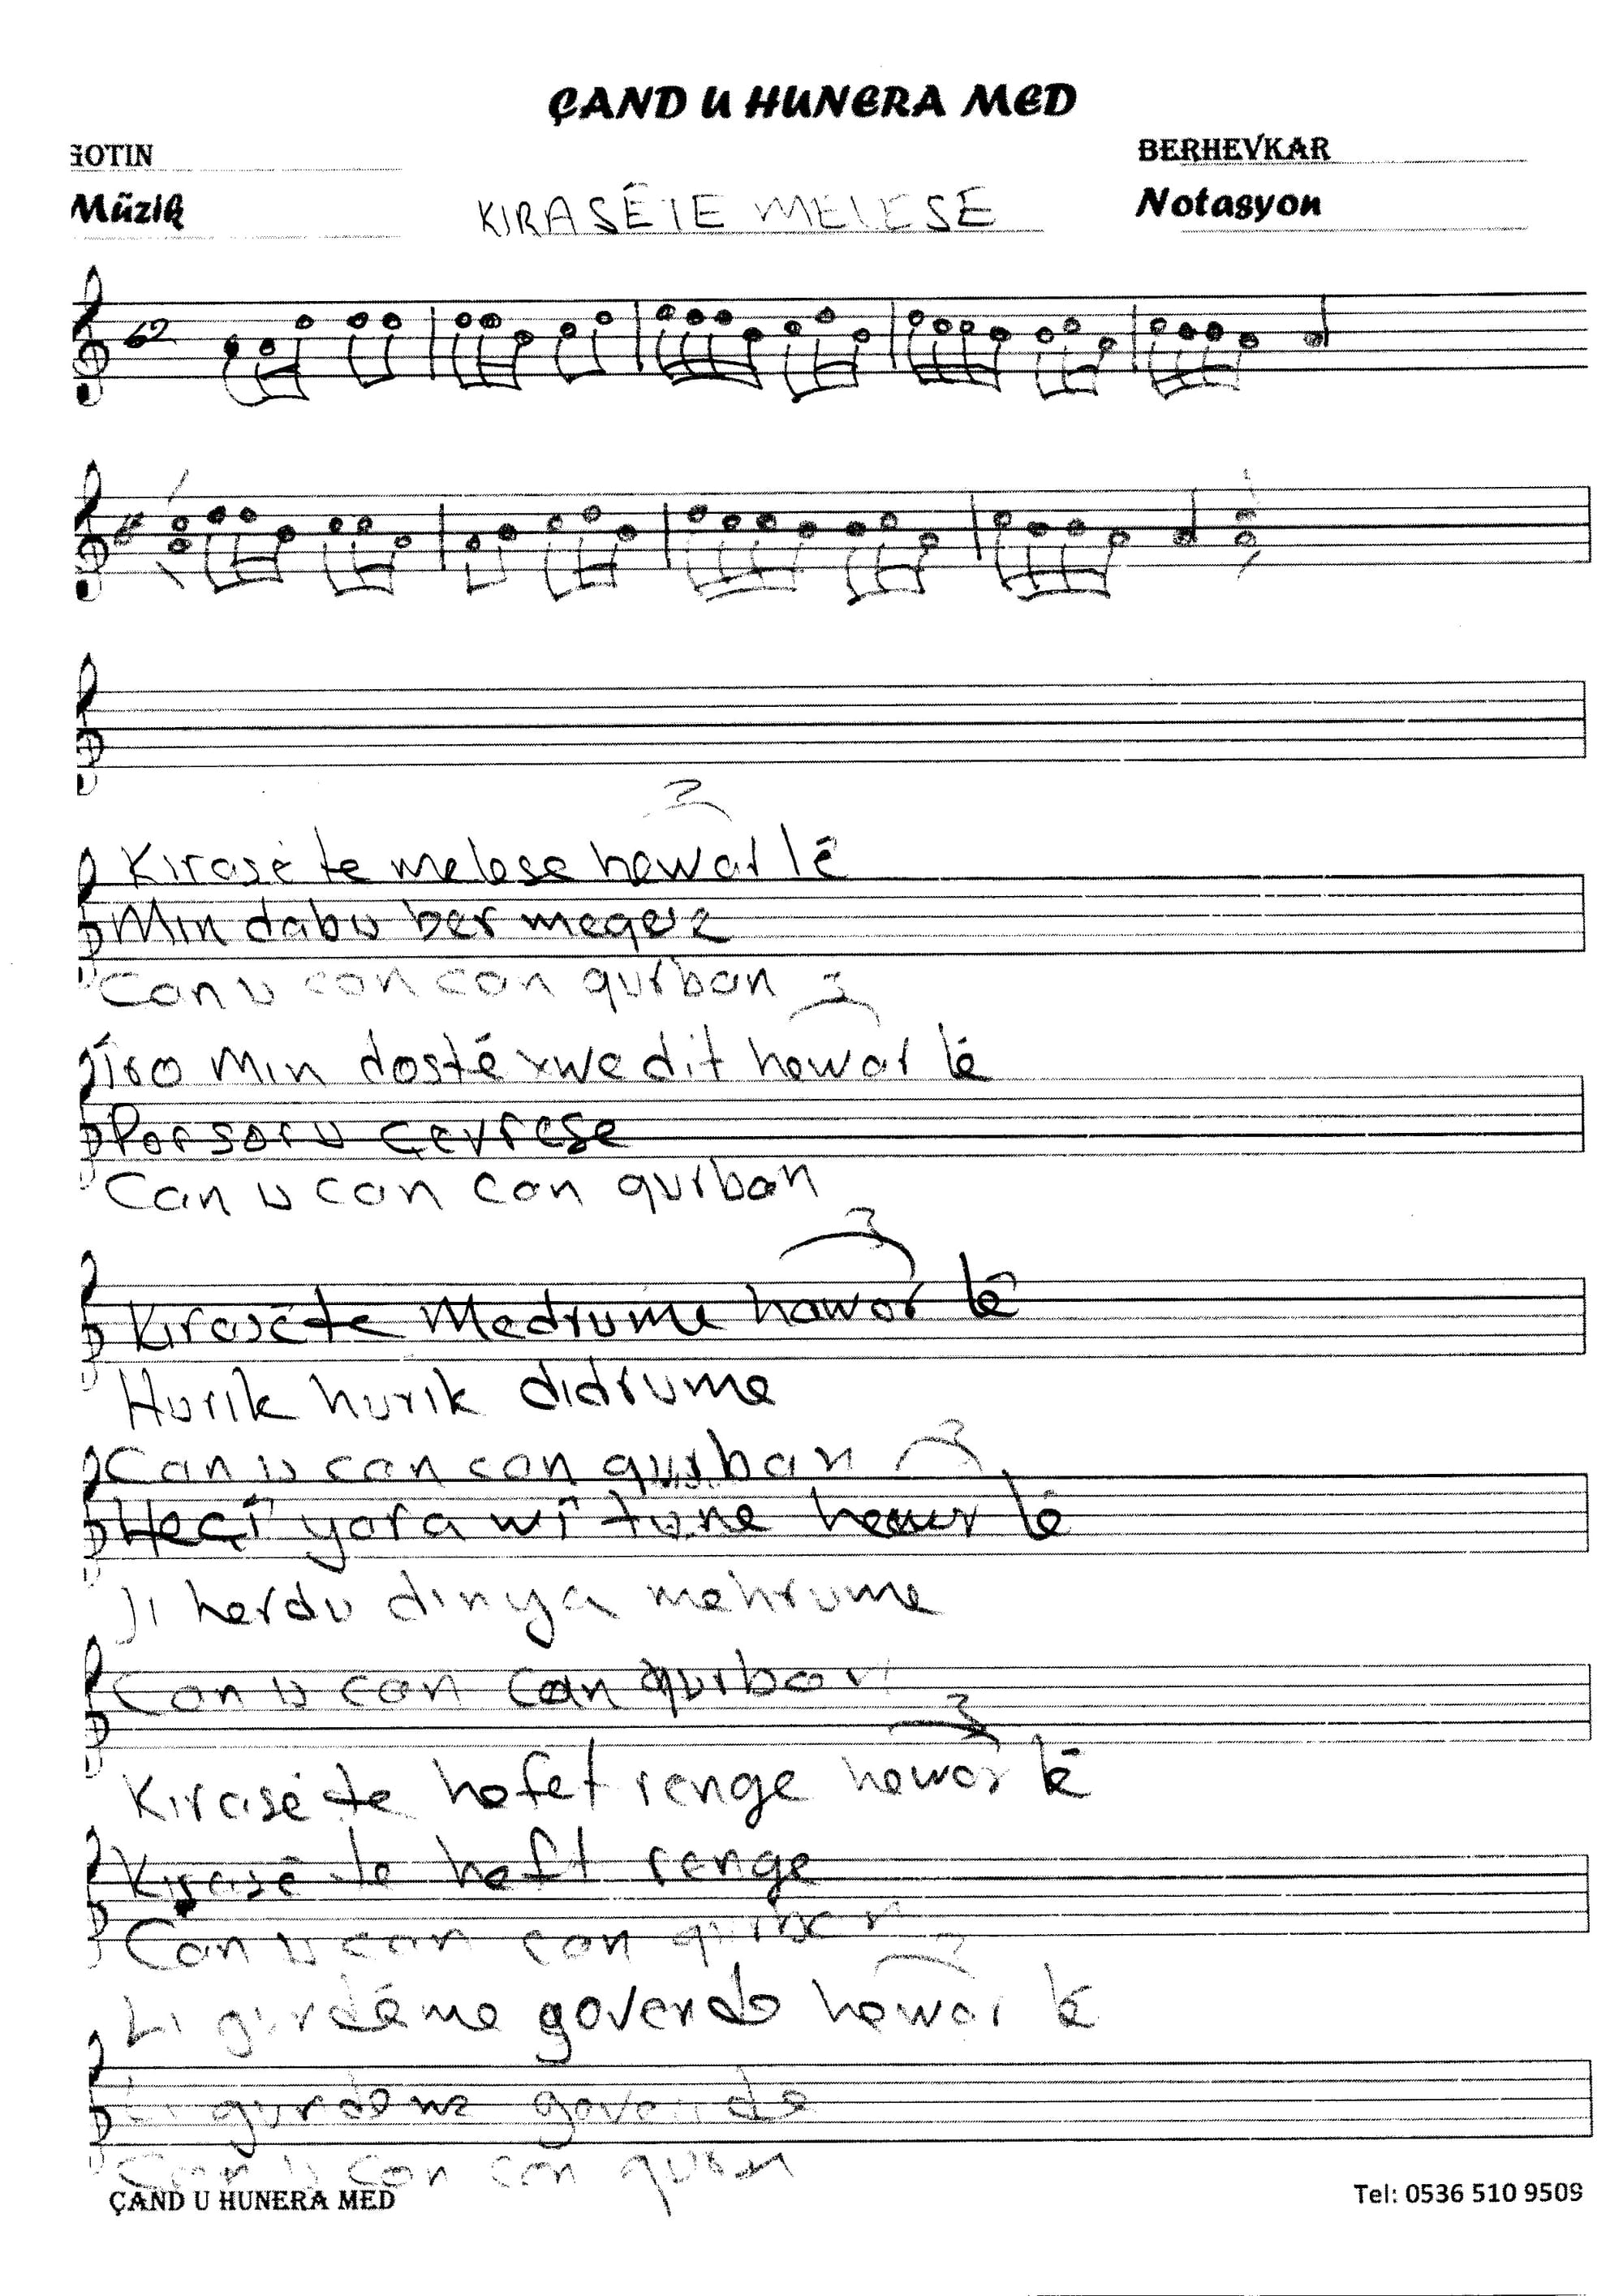 ÇAND U HUNERA MED
GOTIN
BERHEVKAR
Müzik
KIRASÊTE MELESE
Notasyon
62
3
Kırasê te melese hawar lê
Mın dabu ber meqese
Can u can can qurban
3
Îro mın dostê xwe dit hawar lê
Por sor u çevreşe
Can u can can qurban
3
Kırasê te Medrume hawar lê
Hurık hurık dıdrume
Can u can can qurban
3
Heçî yara wî tune hawar lê
Jı herdu dınya mehrume
Can u can can qurban
3
Kırasê te hefet renge hawar lê
Kırasê te heft renge
Can u can can qurban
3
Lı gundême govende hawar lê
Lı gundeme govende
Can u can can
ÇAND U HUNERA MED
Tel: 0536 510 9509